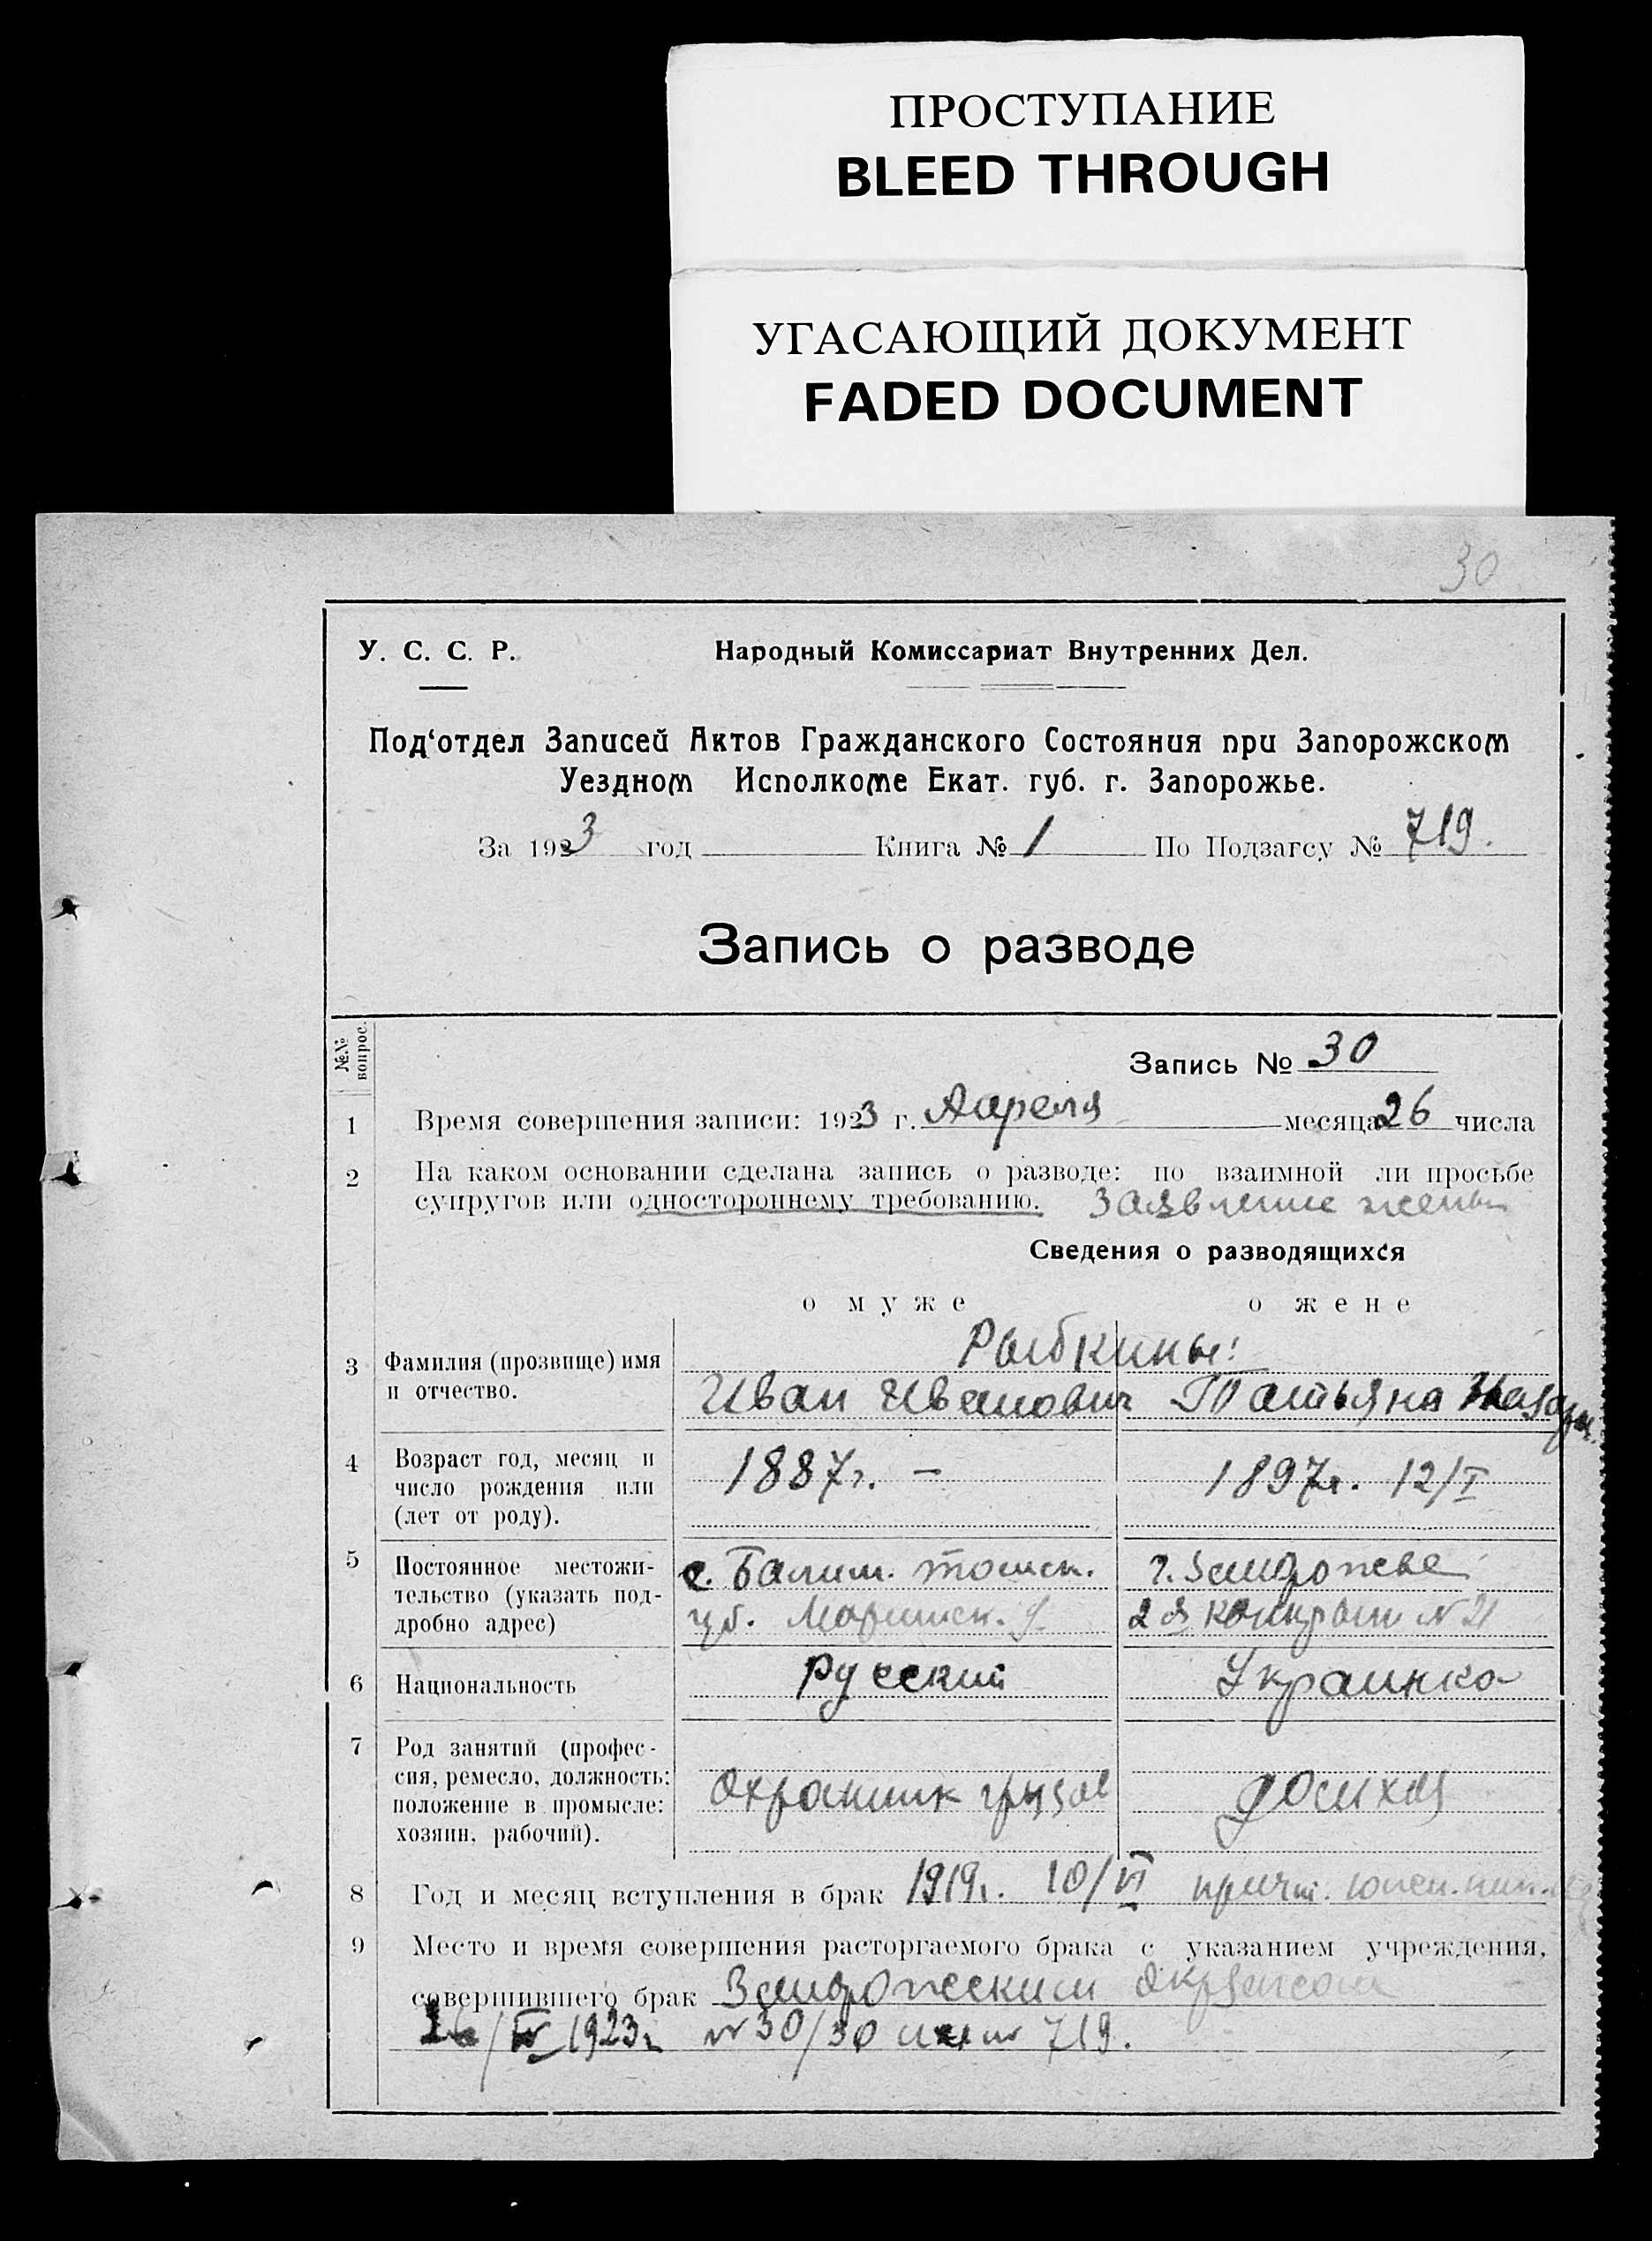 ПРОСТУПАНИЕ
BLEED THROUGH
УГАСАЮЩИЙ ДОКУМЕНТ
FADED DOCUMENT
30
У. С. С. Р. Народный Комиссариат Внутренних Дел.
Под‘отдел Записей Актов Гражданского Состояния при Запорожском
Уездном Исполкоме Екат. губ. г. Запорожье.
За 1923 год Книга № 1 По Подзагсу № 719.
Запись о разводе
№№ вопрос.
Запись № 30
1 Время совершения записи: 1923 г. Апреля месяца 26 числа
2 На каком основании сделана запись о разводе: по взаимной ли просьбе
супругов или одностороннему требованию. Заявление жены
Сведения о разводящихся
о муже о жене
Рыбкины:
3 Фамилия (прозвище) имя
и отчество. Иван Иванович Татьяна
4 Возраст год, месяц и
число рождения или 1887г. – 1897г. 12/I
(лет от роду).
5 Постоянное местожи- г. Запорожье
тельство (указать под- губ. 2 я № 21
дробно адрес)
6 Национальность Русский Украинка
7 Род занятий (профес-
сия, ремесло, должность:
положение в промысле: Охранник грузов
хозяин, рабочий).
8 Год и месяц вступления в брак 1919г. 10/VI
9 Место и время совершения расторгаемого брака с указанием учреждения,
совершившего брак Запорожским
26/IV 1923г № 30/30 № 719.